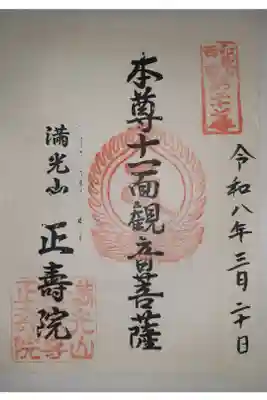 令和八年三月二十日
本尊十一面観音菩薩
満光山 正壽院